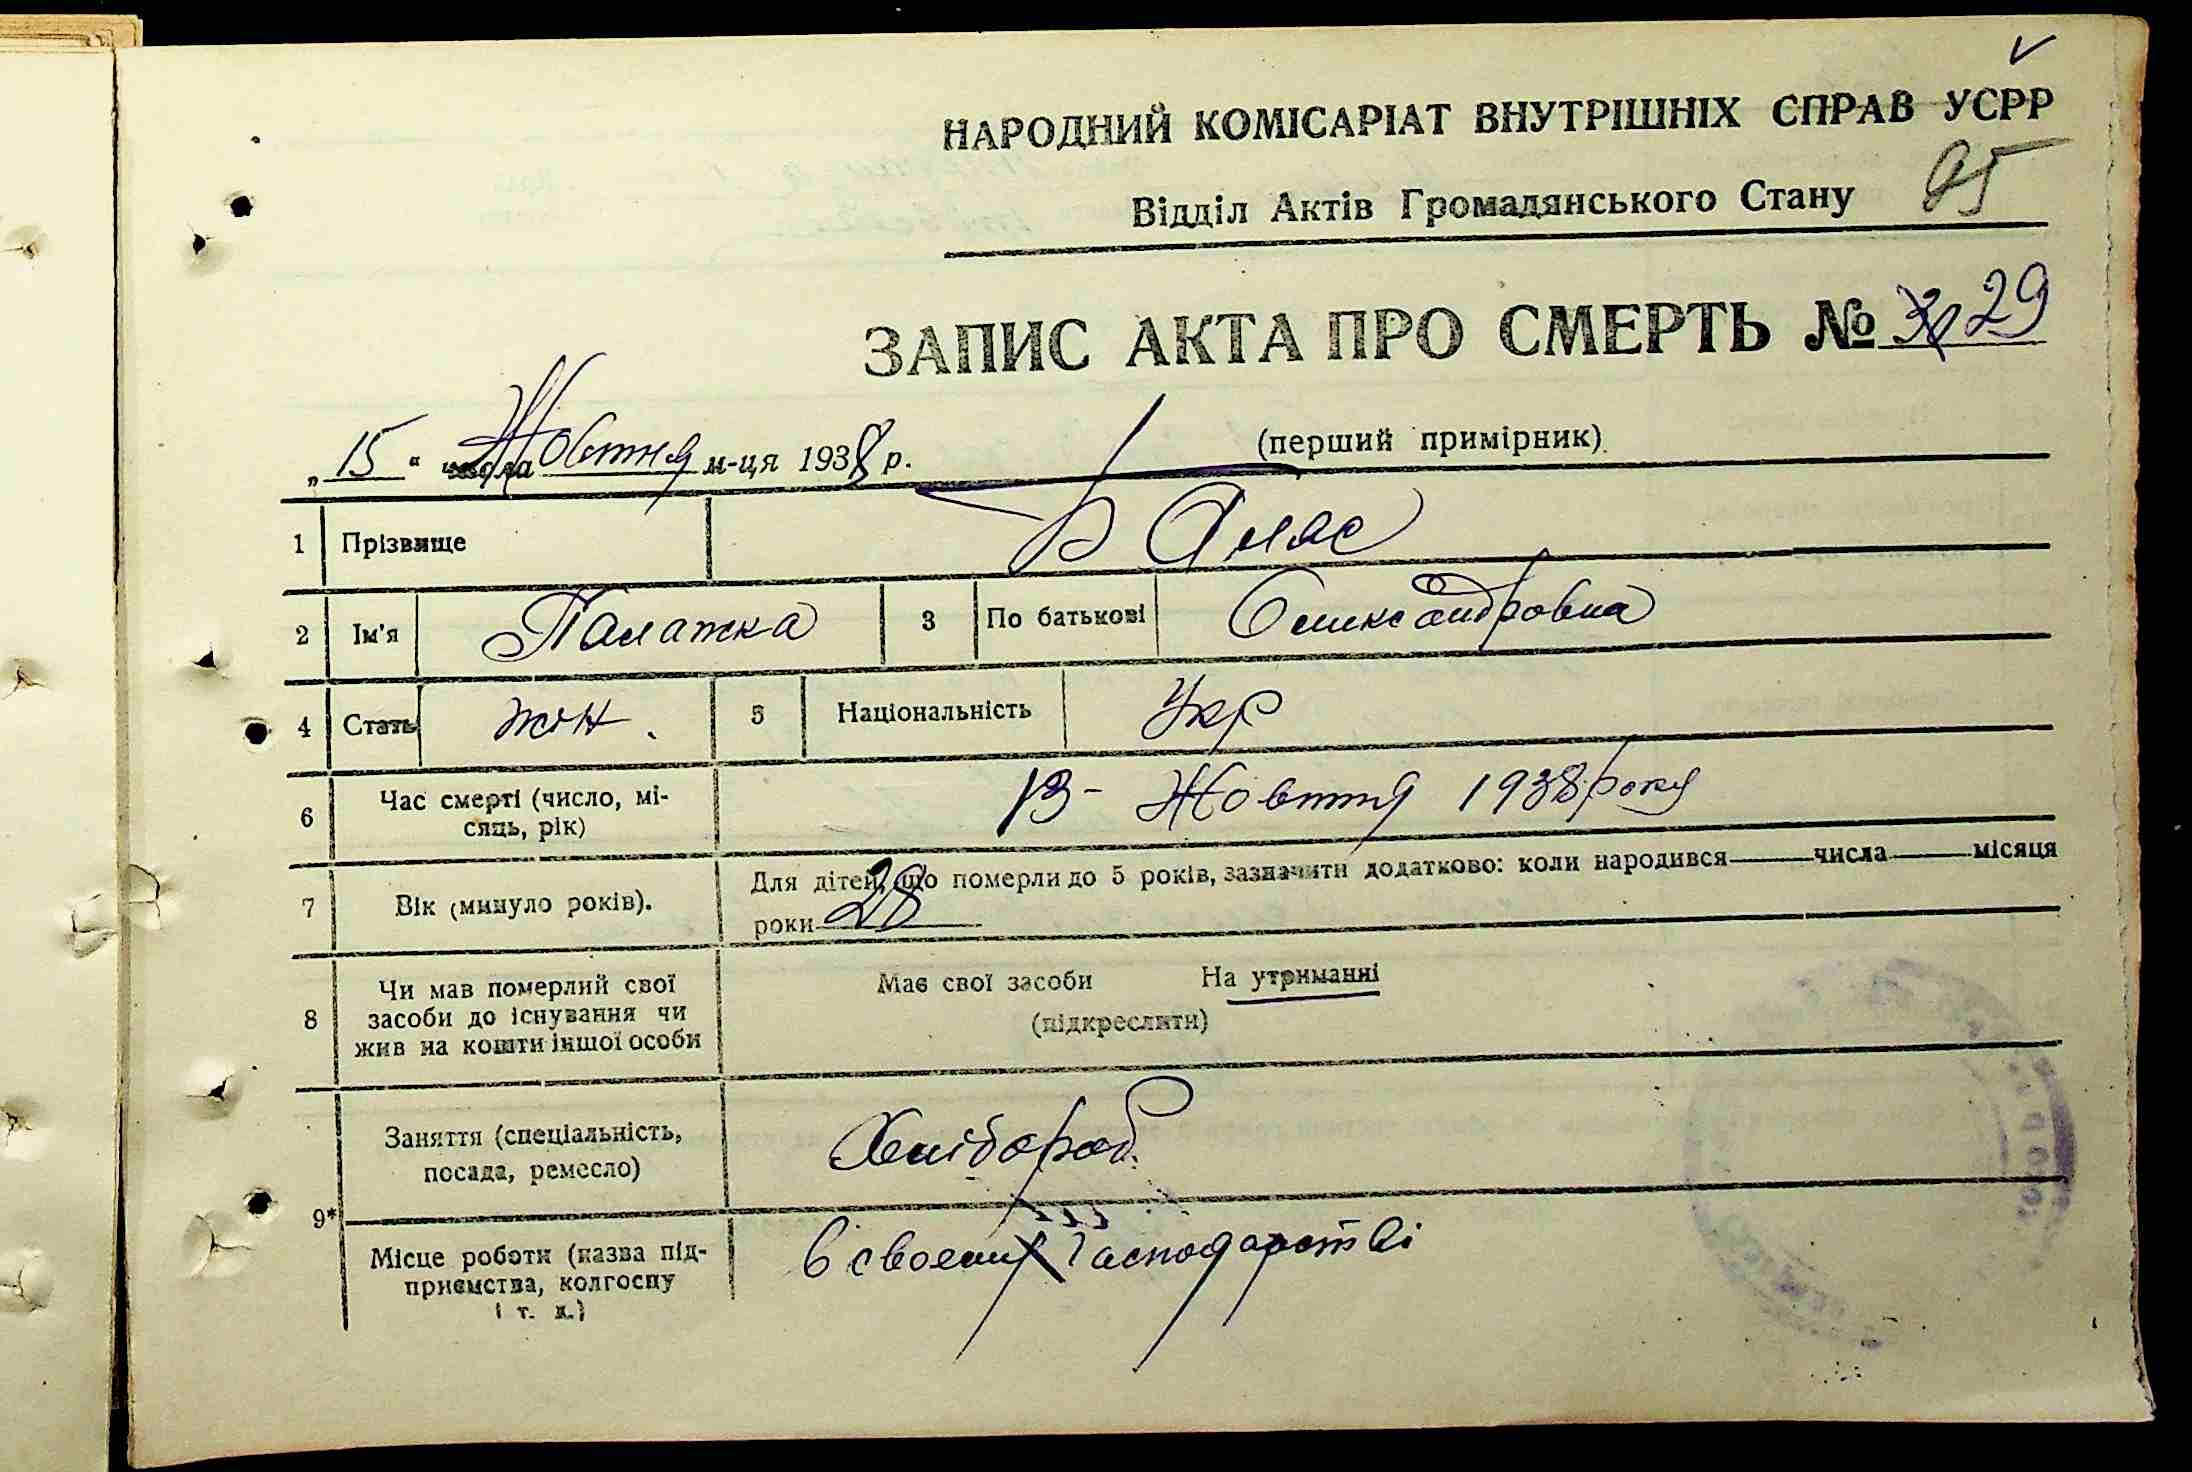 НАРОДНИЙ КОМІСАРІАТ ВНУТРІШНІХ СПРАВ УСРР
Відділ Актів Громадянського Стану 95
ЗАПИС АКТА ПРО СМЕРТЬ № 29
„15“ числа Жовтня м-ця 1938 р. (перший примірник)
1 Прізвище
2 Ім'я Палажка 3 По батькові Олександровна
4 Стать жін. 5 Національність Укр
6 Час смерті (число, мі-
сяць, рік) 13 - Жовтня 1938 року
7 Вік (минуло років). Для дітей, що померли до 5 років, зазначити додатково: коли народився числа місяця
роки 28
8 Чи мав померлий свої
засоби до існування чи
жив на кошти іншої особи
Має свої засоби На утриманні
(підкреслити)
9*
Заняття (спеціальність,
посада, ремесло) Хлібороб.
Місце роботи (назва під-
приємства, колгоспу
і т. д.) В своему господарстві